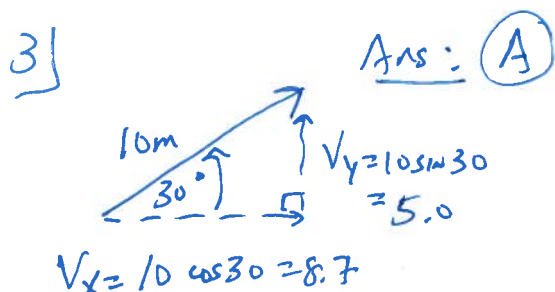 3]
Ans: A
10m
30°
Vy=10sin30
=5.0
Vx=10 cos30=8.7